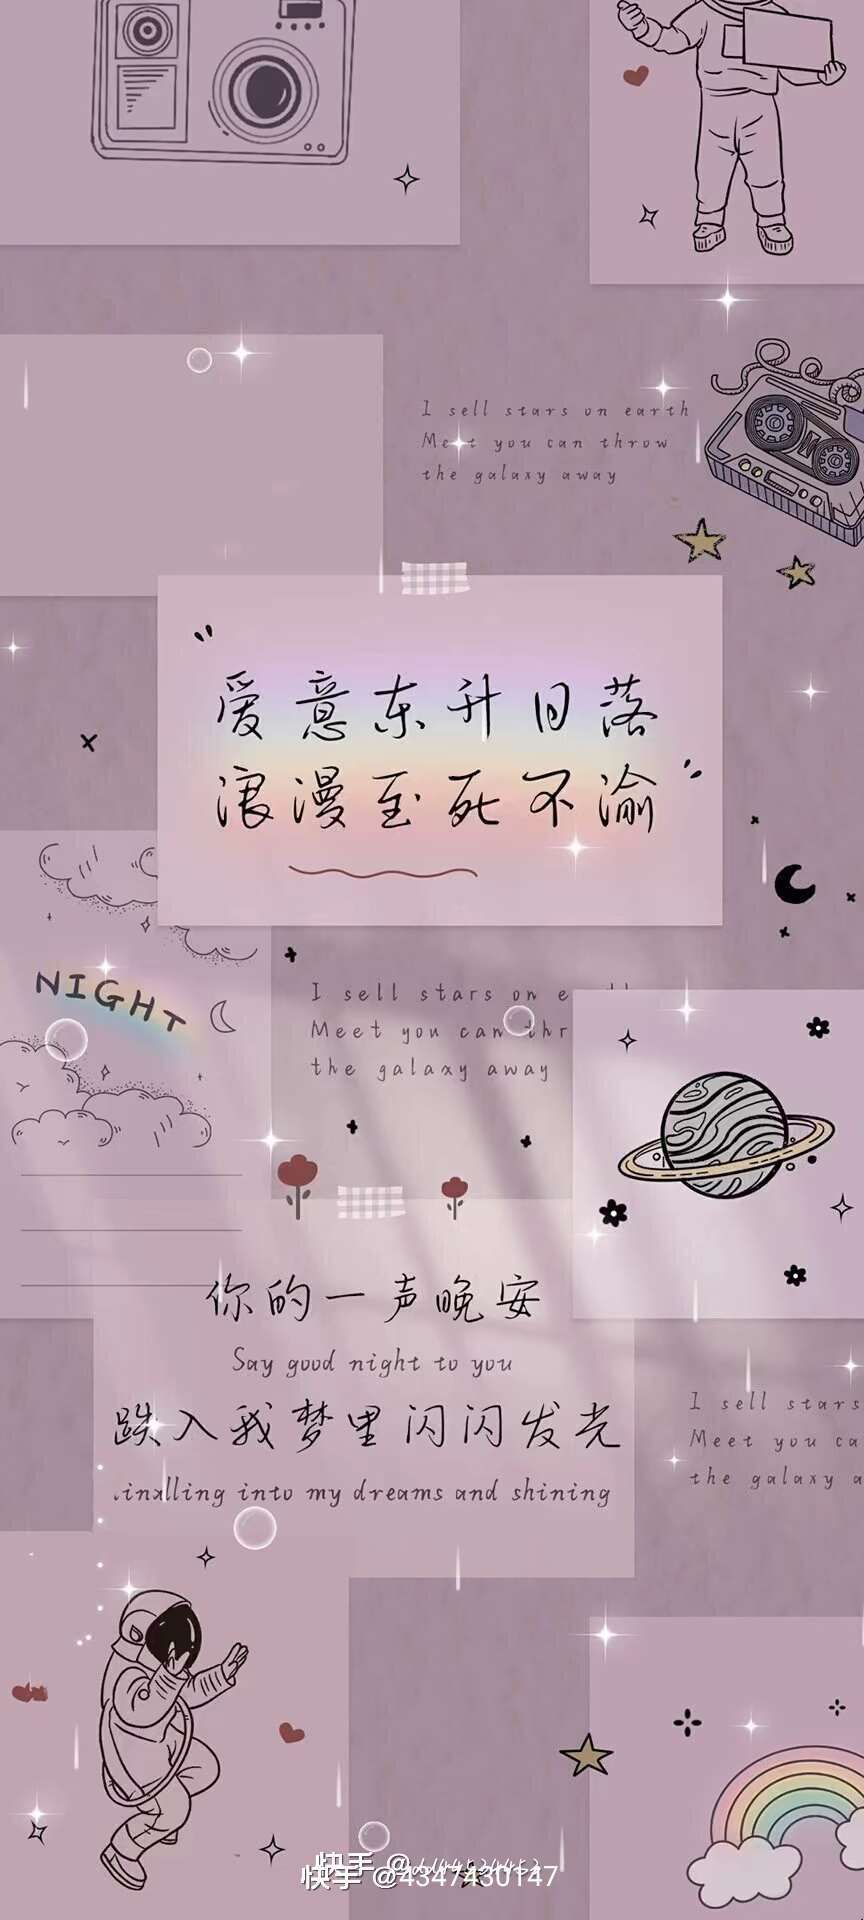 I sell stars on earth
Meet you can throw
the galaxy away
爱意东升日落
浪漫至死不渝
NIGHT
I sell stars on e
Meet you can thr
the galaxy away
你的一声晚安
Say good night to you
跌入我梦里闪闪发光
I sell stars
Meet you ca
the galaxy a
into my dreams and shining
快手
快手 @4347430147